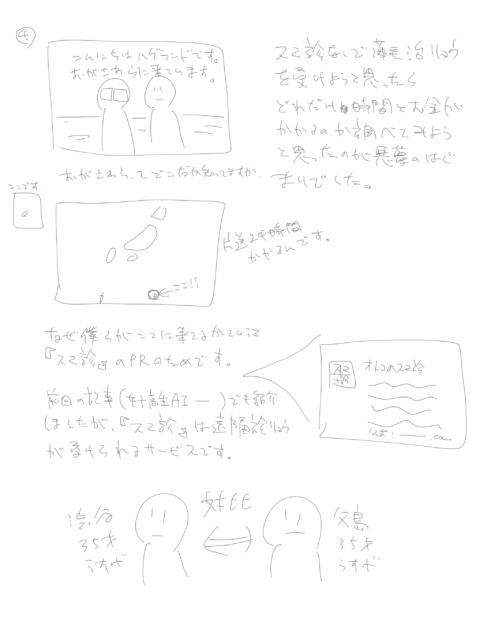 ④
こんにちは ハゲランドです。
おがさわらに来ています。
スマ診なしで薄毛治りょう
を受けようと思ったら
どれだけ時間とお金が
かかるのか調べてみよう
と思ったのが悪夢のはじ
まりでした。
おがさわらってどこだか知ってますか。
ここです
片道24時間
かかるんです。
ここ!!
なぜ僕らがここに来てるかていうと
『スマ診』のPRのためです。
前回の記事(女子高生AI ー)でも紹介
しましたが、『スマ診』は遠隔診りょう
が受けられるサービスです。
スマ診
オトコのスマ診
.com
渋谷
35才
うすげ
対ヒ
父島
35才
うすげ